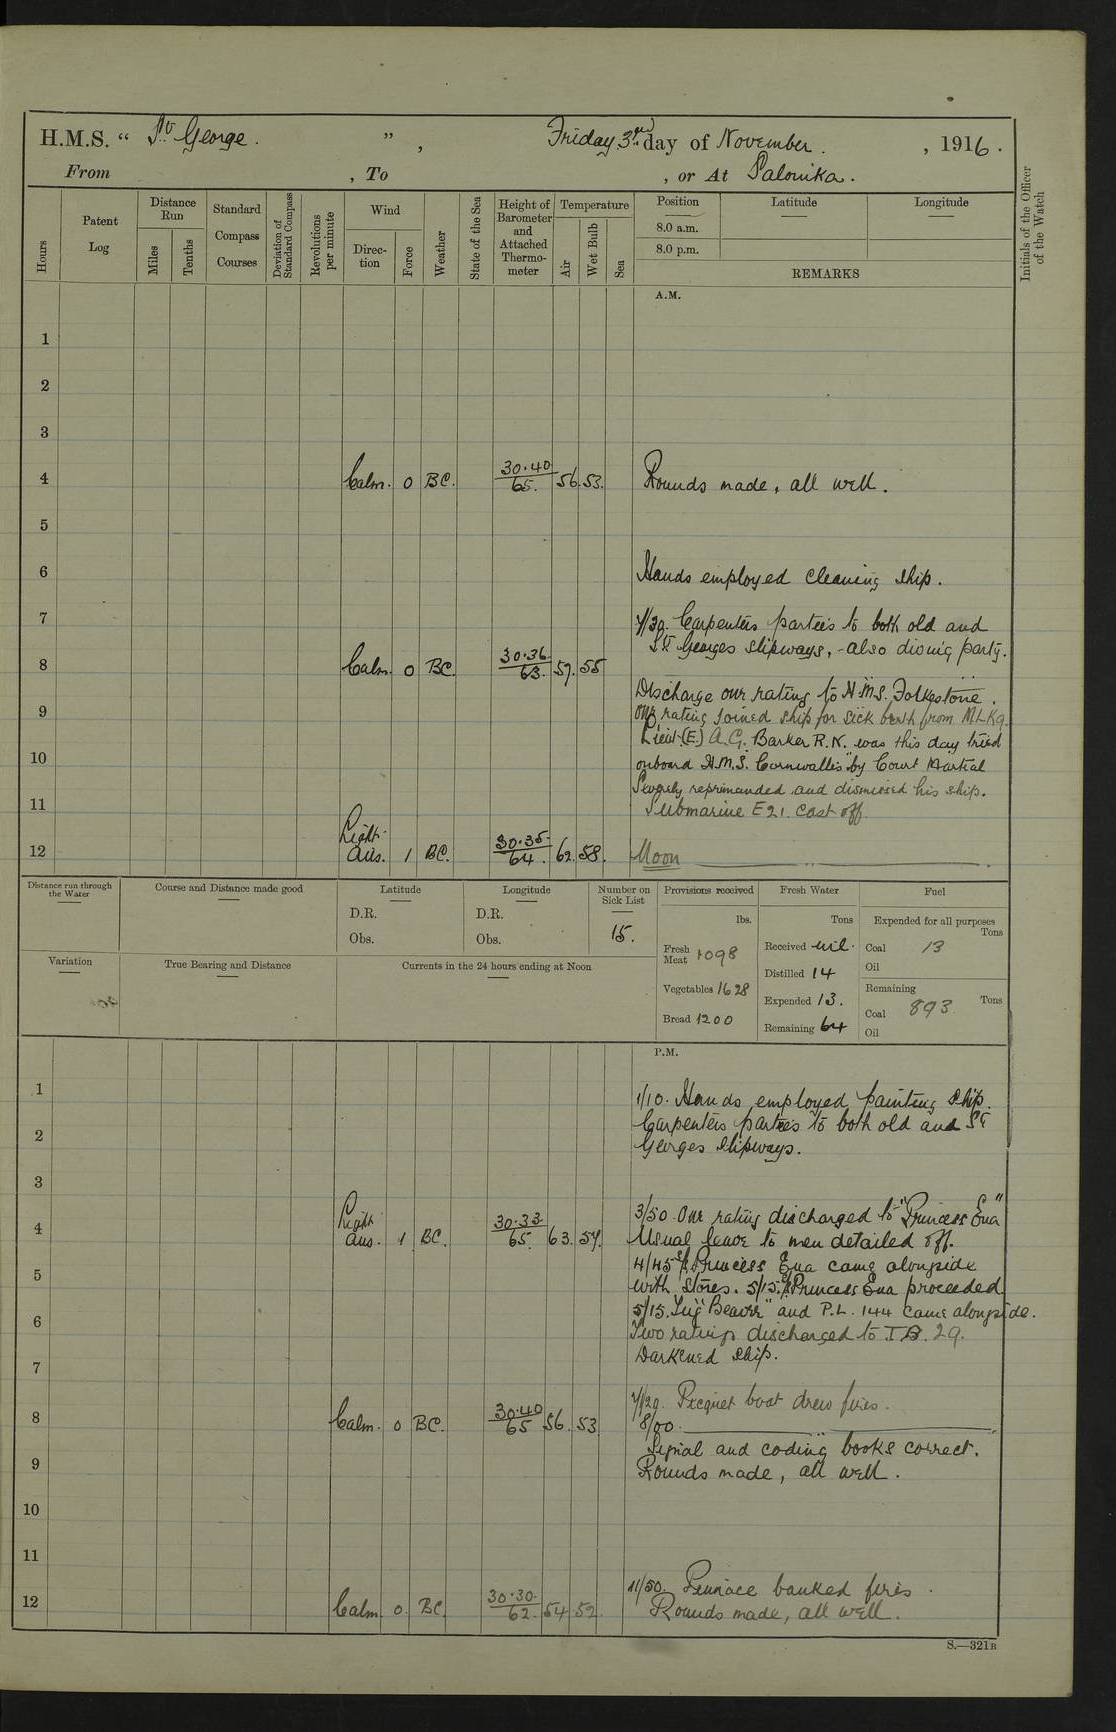 H.M.S. “ St George. ” , Friday 3rd day of November. , 1916.
From , To , or At Salonika.
Hours
Patent Log
Distance Run
Miles
Tenths
Standard Compass Courses
Deviation of Standard Compass
Revolutions per minute
Wind
Direction
Force
Weather
State of the Sea
Height of Barometer and Attached Thermometer
Temperature
Air
Wet Bulb
Sea
Position
8.0 a.m.
8.0 p.m.
Latitude
Longitude
REMARKS
Initials of the Officer of the Watch
A.M.
1
2
3
4 Calm. 0 BC. 30.40/65. 56. 53. Rounds made, all well.
5
6 Hands employed cleaning ship.
7 7/30. Carpenters parties to both old and
St Georges slipways, - also diving party.
8 Calm. 0 BC. 30.36/63. 57. 55
Discharge one rating to H.M.S. Folkestone.
9 one rating joined ship for sick berth from MLK9.
Lieut. (E.) A.G. Barker R.N. was this day tried
10 onboard H.M.S. Cornwallis" by Court Martial
Severely reprimanded and dismissed his ship.
11 Submarine E21. cast off
12 Light Airs. 1 BC. 30.35/64. 62. 58. Noon
Distance run through the Water
Course and Distance made good
Latitude
D.R.
Obs.
Longitude
D.R.
Obs.
Number on Sick List
15.
Provisions received
lbs.
Fresh Meat 1098
Vegetables 1628
Bread 1200
Fresh Water
Tons
Received nil.
Distilled 14
Expended 13.
Remaining 64
Fuel
Expended for all purposes
Tons
Coal 13
Oil
Remaining
Tons
Coal 893
Oil
Variation
True Bearing and Distance
Currents in the 24 hours ending at Noon
P.M.
1 1/10. Hands employed painting ship.
2 Carpenters parties to both old and St
Georges slipways.
3
3/50 One rating discharged to "Princess Ena"
4 Light Airs. 1 BC. 30.33/65. 63. 57. Usual leave to men detailed off.
4/45 Princess Ena came alongside
5 with stores. 5/15. Princess Ena proceeded
5/15. Tug "Beaver" and P.L. 144 came alongside.
6 Two ratings discharged to T.B. 29.
7 Darkened ship.
7/20. Picquet boat drew fires.
8 Calm. 0 BC. 30.40/65 56. 53 8/00.
Signal and coding books correct.
9 Rounds made, all well.
10
11
11/50. Pinnace banked fires.
12 Calm 0. BC. 30.30./62. 54 52. Rounds made, all well.
S.—321B